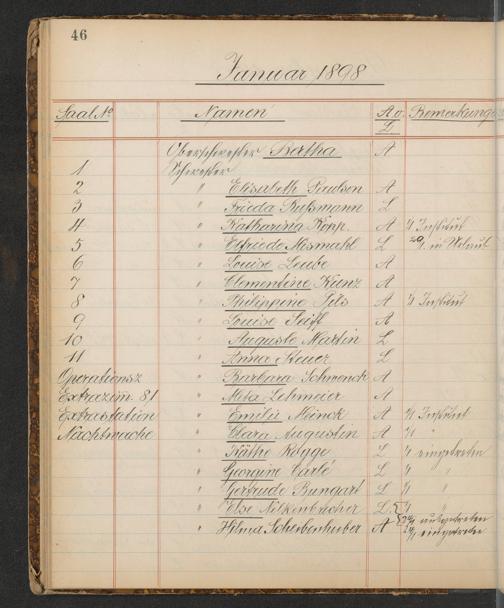 46
Januar 1898
Saal No Namen A. o. L. Bemerkung
Oberschwester Bertha A
1 Schwester
2 " Elisabeth Paulsen A
3 " Frieda Bußmann L
4 " Katharina Kopp. A 1/1 Institut
5 " Elfriede Mismahl L 20/1. in Urlaub
6 " Louise Leube A
7 " Clementine Kunz A
8 " Philippine Fels A 1/1 Institut
9 " Louise Seifl A
10 " Auguste Martin L
11 " Anna Heuer L
Operationsz " Barbara Schwenck A
Extrazim. 81 " Meta Lehmeier A
Extrastation " Emilie Meinck A 1/1 Institut
Nachtwache " Clara Augustin A 1/1
" Käthe Rogge L 1/1 eingetreten
" Georgine Carlé L 1/1 "
" Gertrude Bungart L 1/1 "
" Else L 1/1 "
" Hilma Scheibenhuber A ausgetreten
eingetreten